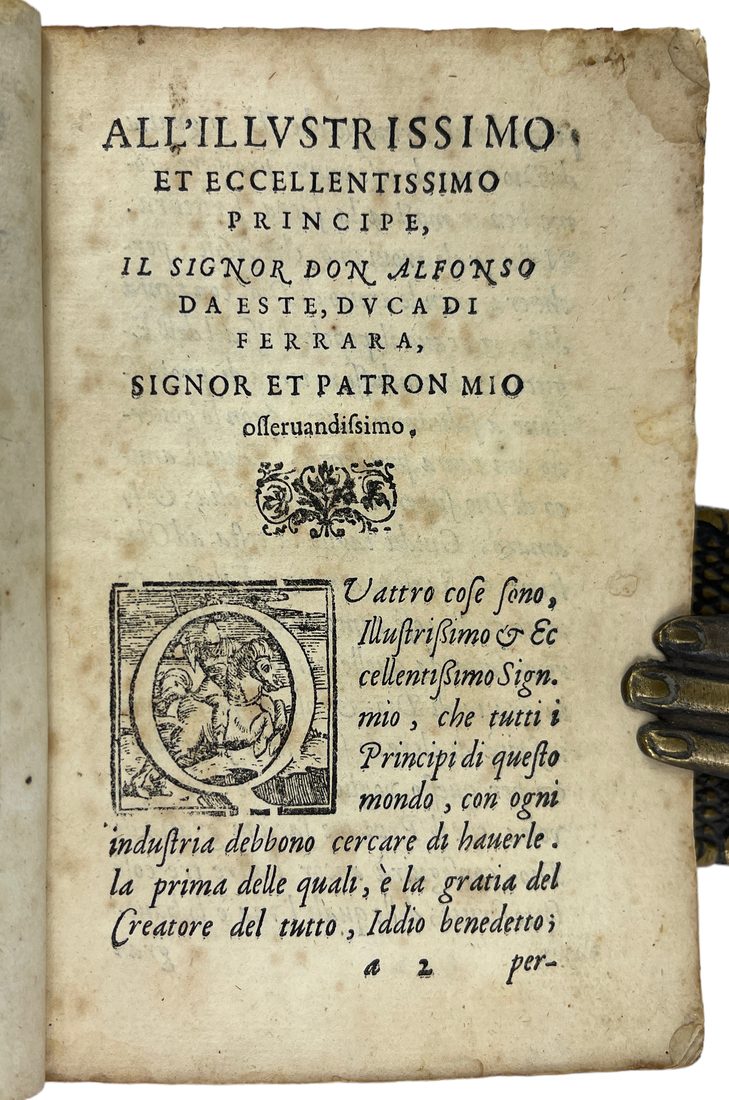 ALL'ILLVSTRISSIMO
ET ECCELLENTISSIMO
PRINCIPE,
IL SIGNOR DON ALFONSO
DA ESTE, DVCA DI
FERRARA,
SIGNOR ET PATRON MIO
oſſeruandiſsimo.
QVattro coſe ſono,
Illuſtriſsimo & Ec
cellentiſsimo Sign.
mio, che tutti i
Principi di queſto
mondo, con ogni
induſtria debbono cercare di hauerle.
la prima delle quali, è la gratia del
Creatore del tutto, Iddio benedetto;
a 2 per-